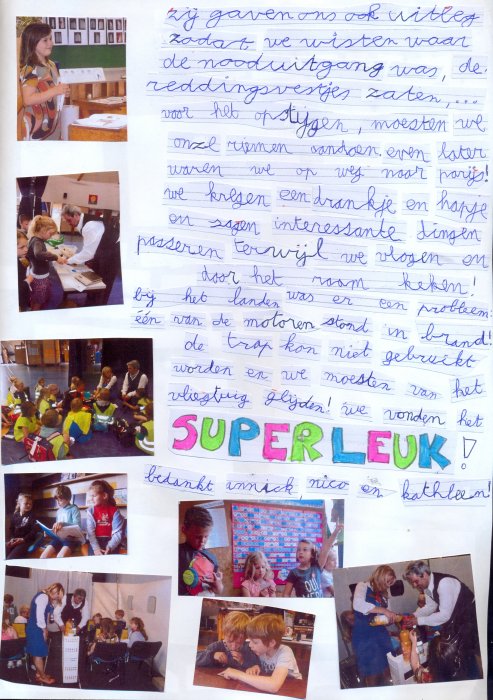 zij gaven ons ook uitleg
zodat we wisten waar
de nooduitgang was, de
reddingsvestjes zaten,...
voor het opstijgen, moesten we
onze riemen aandoen, even later
waren we op weg naar parijs!
we kregen een drankje en hapje
en zagen interessante dingen
passeren terwijl we vlogen en
door het raam keken!
bij het landen was er een probleem:
één van de motoren stond in brand!
de trap kon niet gebruikt
worden en we moesten van het
vliegtuig glijden! we vonden het
SUPERLEUK!
bedankt annick, nico en kathleen!